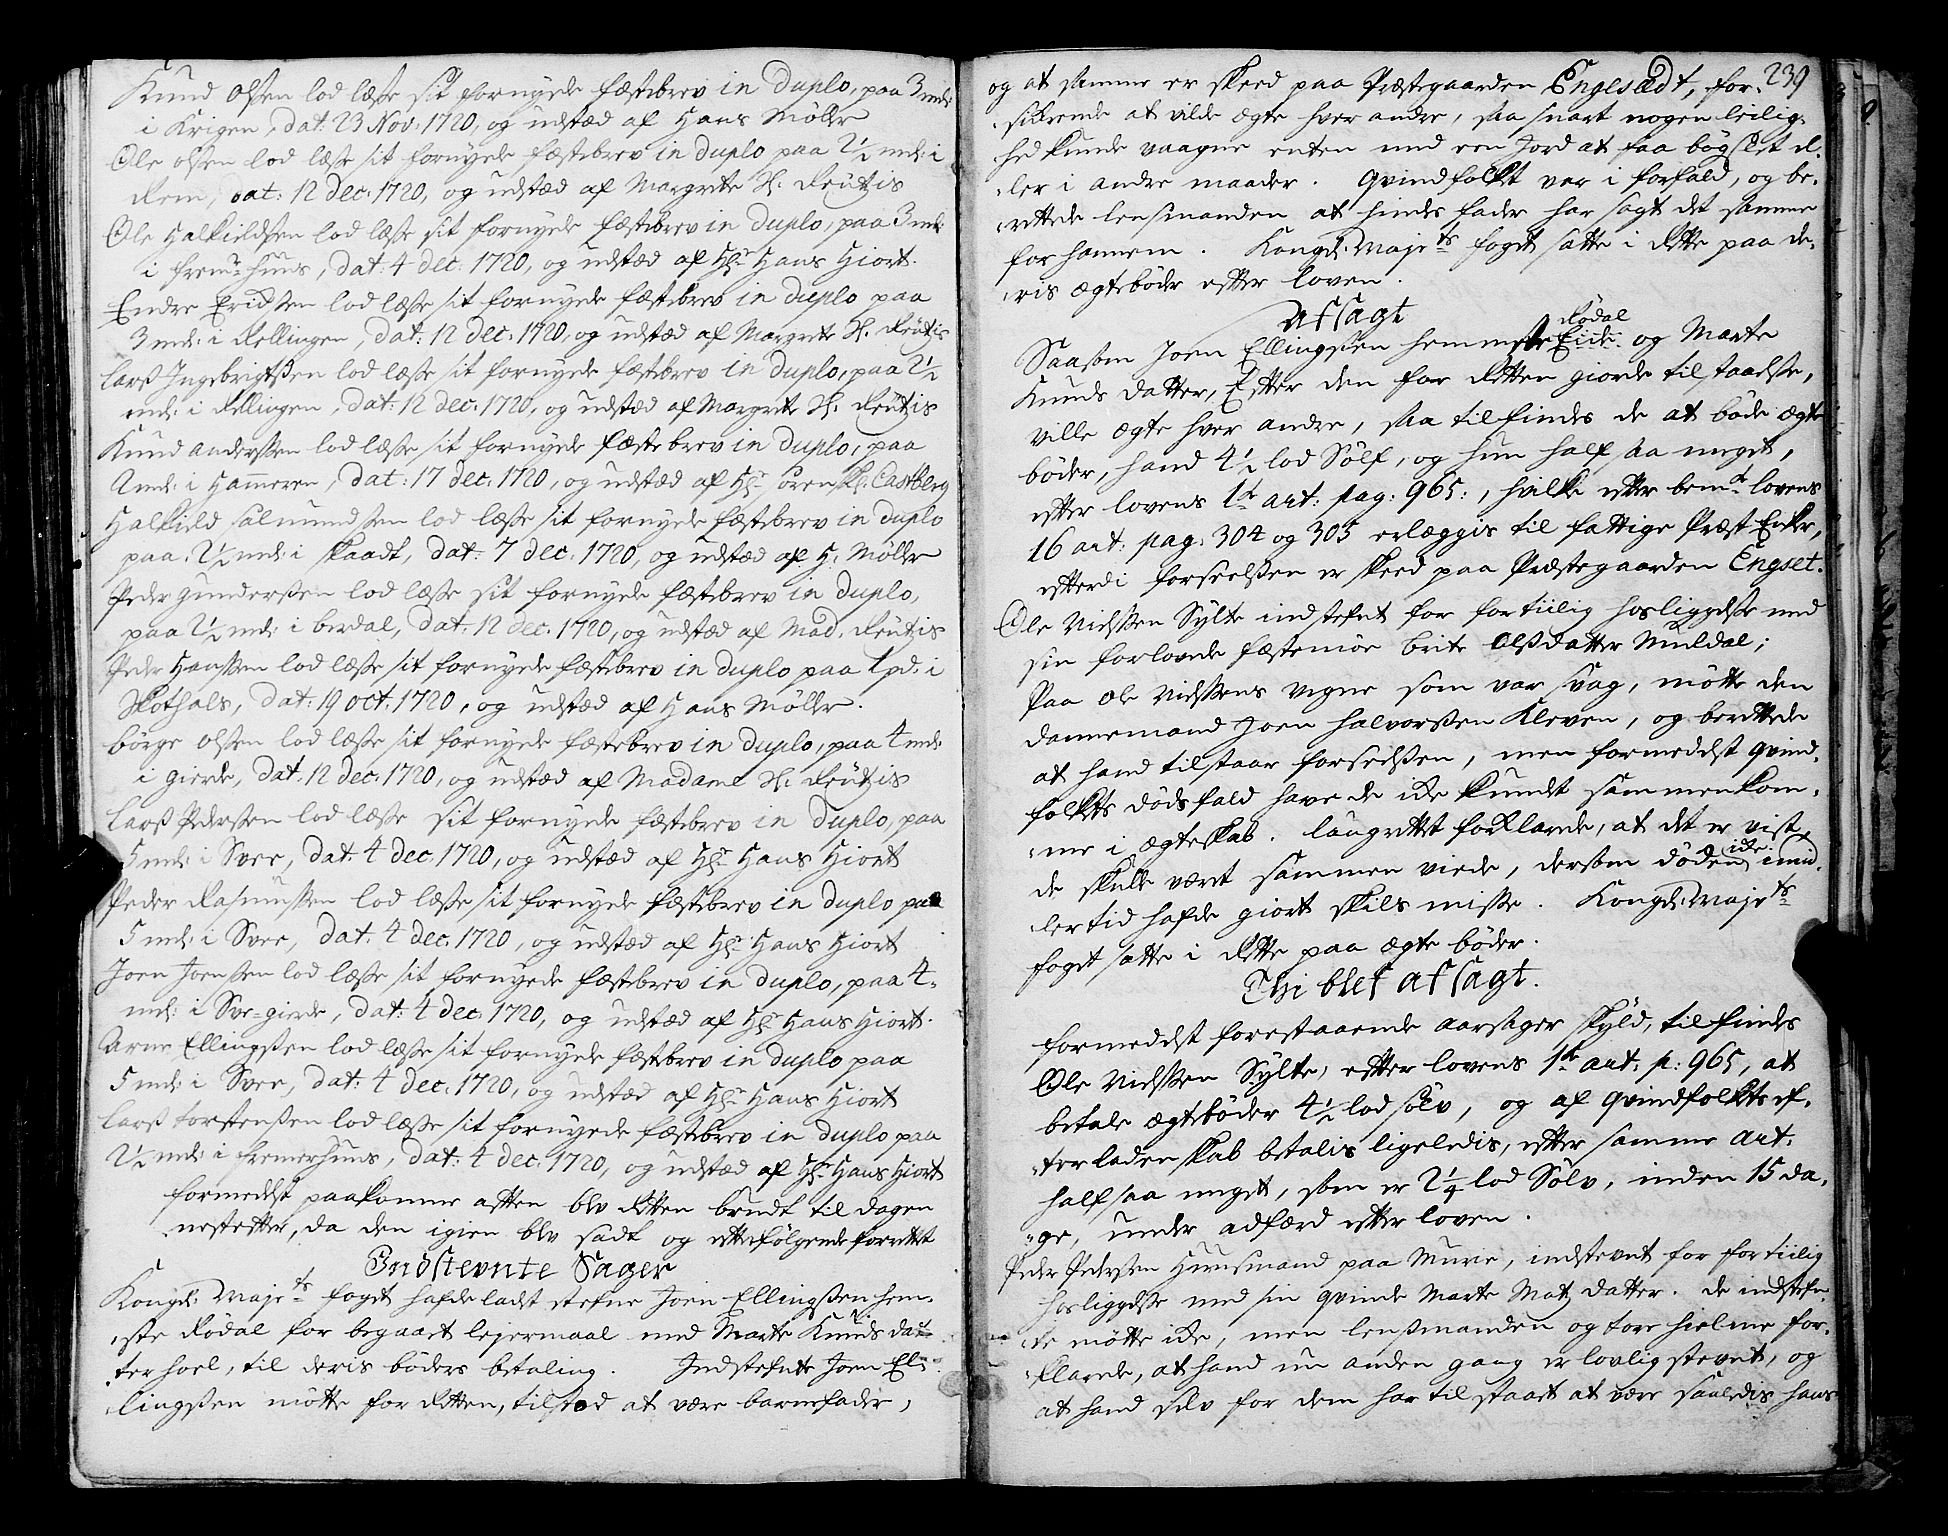 Knud Olsen lod læsse sit fornyede fæstebrev in duplo, paa 3 mel:
i Krigen, dat: 23 Nov: 1720, og udstæd af Hans Möller
Ole Olsen lod læsse sit fornyede fæstebrev in duplo paa 2½ mel: i
Rem, dat: 12 dec: 1720, og udstæd af Margrete Sl. Reutzis
Ole Halkieldsen lod læsse sit fornyede fæstebrev in duplo, paa 3 mel:
i fremrehuus, dat: 4 dec: 1720, og udstæd af Hr: Hans Hiort.
Endre Eridssen lod læsse sit fornyede fæstebrev in duplo paa
3 mel: i Rellingen, dat: 12 dec: 1720, og udstæd af Margrete Sl. Reutzis
Larss Ingebrigtssen lod læsse sit fornyede fæstebrev in duplo, paa 2½
mel: i Rellingen, dat: 12 dec: 1720, og udstæd af Margrete Sl: Reutzis
Knud Anderssen lod læsse sit fornyede fæstebrev in duplo, paa
2 mel: i Hammeren, dat: 17 dec: 1720, og udstæd af Hr: Sören Castberg
Halkield Salmundssen lod læsse sit fornyede fæstebrev in duplo
paa 2½ mel: i Skaadt, dat: 7 dec: 1720, og udstæd af H: Möller
Peder Gunderssen lod læsse sit fornyede fæstebrev in duplo,
paa 2½ mel: i berdal, dat: 12 dec: 1720, og udstæd af Mad. Reutzis
Peder Hanssen lod læsse sit fornyede fæstebrev in duplo paa 1 pd: i
Skothals, dat: 19 oct: 1720, og udstæd af Hans Möller.
börge Olsen lod læsse sit fornyede fæstebrev in duplo, paa 4 mel:
i gierde, dat: 12 dec: 1720, og udstæd af Madame Sl: Reutzis
Larss Pederssen lod læsse sit fornyede fæstebrev in duplo, paa
5 mel: i Svee, dat: 4 dec. 1720, og udstæd af Hr: Hans Hiort
Peder Rasmussen lod læsse sit fornyede fæstebrev in duplo paa
5 mel: i Svee, dat: 4 dec. 1720, og udstæd af Hr: Hans Hiort
Joen Joenssen lod læsse sit fornyede fæstebrev in duplo, paa 4
mel: i Sve-gierde, dat: 4 dec: 1720, og udstæd af Hr: Hans Hiort.
Arne Ellingssen lod læsse sit fornyede fæstebrev in duplo paa
5 mel: i Svee, dat: 4 dec: 1720, og udstæd af Hr: Hans Hiort
Larss Torstenssen lod læsse sit fornyede fæstebrev in duplo paa
2½ mel: i fremerhuus, dat: 4 dec: 1720, og udstæd af Hr: Hans Hiort
formedelst paakomne aften blev Retten brudt til dagen
nestefter, da den igien blev sadt og efterfölgende forrettet
Indstevnte Sager
Kongel: Majets foget hafde ladt stefne Joen Ellingssen hem-
ste Rödal for begaaet leyermaal med Marte Knuds dat-
ter hoel, til deris böders betaling. Indstefnte Joen El-
lingssen mötte for Retten, tilstod at være barnefader,
239
og at samme er skeed paa Præstegaarden Engesædt, for-
sikrende at vilde ægte hver andre, saa snart nogen leilig-
hed kunde vaagne enten med een Jord at faa böxlet el-
ler i andre maader. Qvindfolket var i forfald, og be-
rettede lensmanden at hindes fader har sagt det samme
for hannem. Kongel: Majets foget satte i Rette paa de-
ris ægteböder efter loven.
Afsagt
Saasom Joen Ellingssen hemmste Eide Rödal og Marte
Knuds datter, Efter den for Retten giorde tilstaaelse,
ville ægte hver andre, saa tilfindes de at böde ægte
böder, hand 4½ lod Sölf, og hun half saa meget,
efter lovens 1te art: pag: 965:, hvilke efter bemte lovens
16 art: pag: 304 og 305 erlæggis til fattige Præst Enker,
efterdi forseelsen er skeed paa Præstegaarden Engset.
Ole Nielssen Sylte indstefnt for fortiilig hosliggelse med
sin forlovede fæstemöe Brite Olssdatter Muldal;
Paa Ole Nielssens vegne som var svag, mötte den
dannemand Joen Halvorssen Kleven, og berettede
at hand tilstaar forseelsen, men formedelst qvind-
folkets dödsfald have de icke kundet sammenkom-
me i ægteskab. Laugrettet forklarede, at det er vist,
de skulle været sammen viede, dersom döden icke imid-
lertid hafde giort skilsmisse. Kongel: Majets
foget satte i Rette paa ægte böder.
Thi blef afsagt.
formedelst forestaaende aarsager skyld, tilfindes
Ole Nielssen Sylte, efter lovens 1te art: p: 965, at
betale ægteböder 4½ lod sölv, og af qvindfolkets ef-
terladenskab betalis ligeledis, efter samme art:
half saa meget, som er 2¼ lod Sölv, inden 15 da-
ge, under adfærd efter loven.
Peder Pederssen Huusmand paa Mure, indstevnt for fortiilig
hosliggelse med sin qvinde Marte Matz datter. de indstefn-
te mötte icke, men lenssmanden og tore hielme for-
klarede, at hand nu anden gang er lovlig stevnt, og
at hand selv for dem har tilstaaet at være saaledis hans